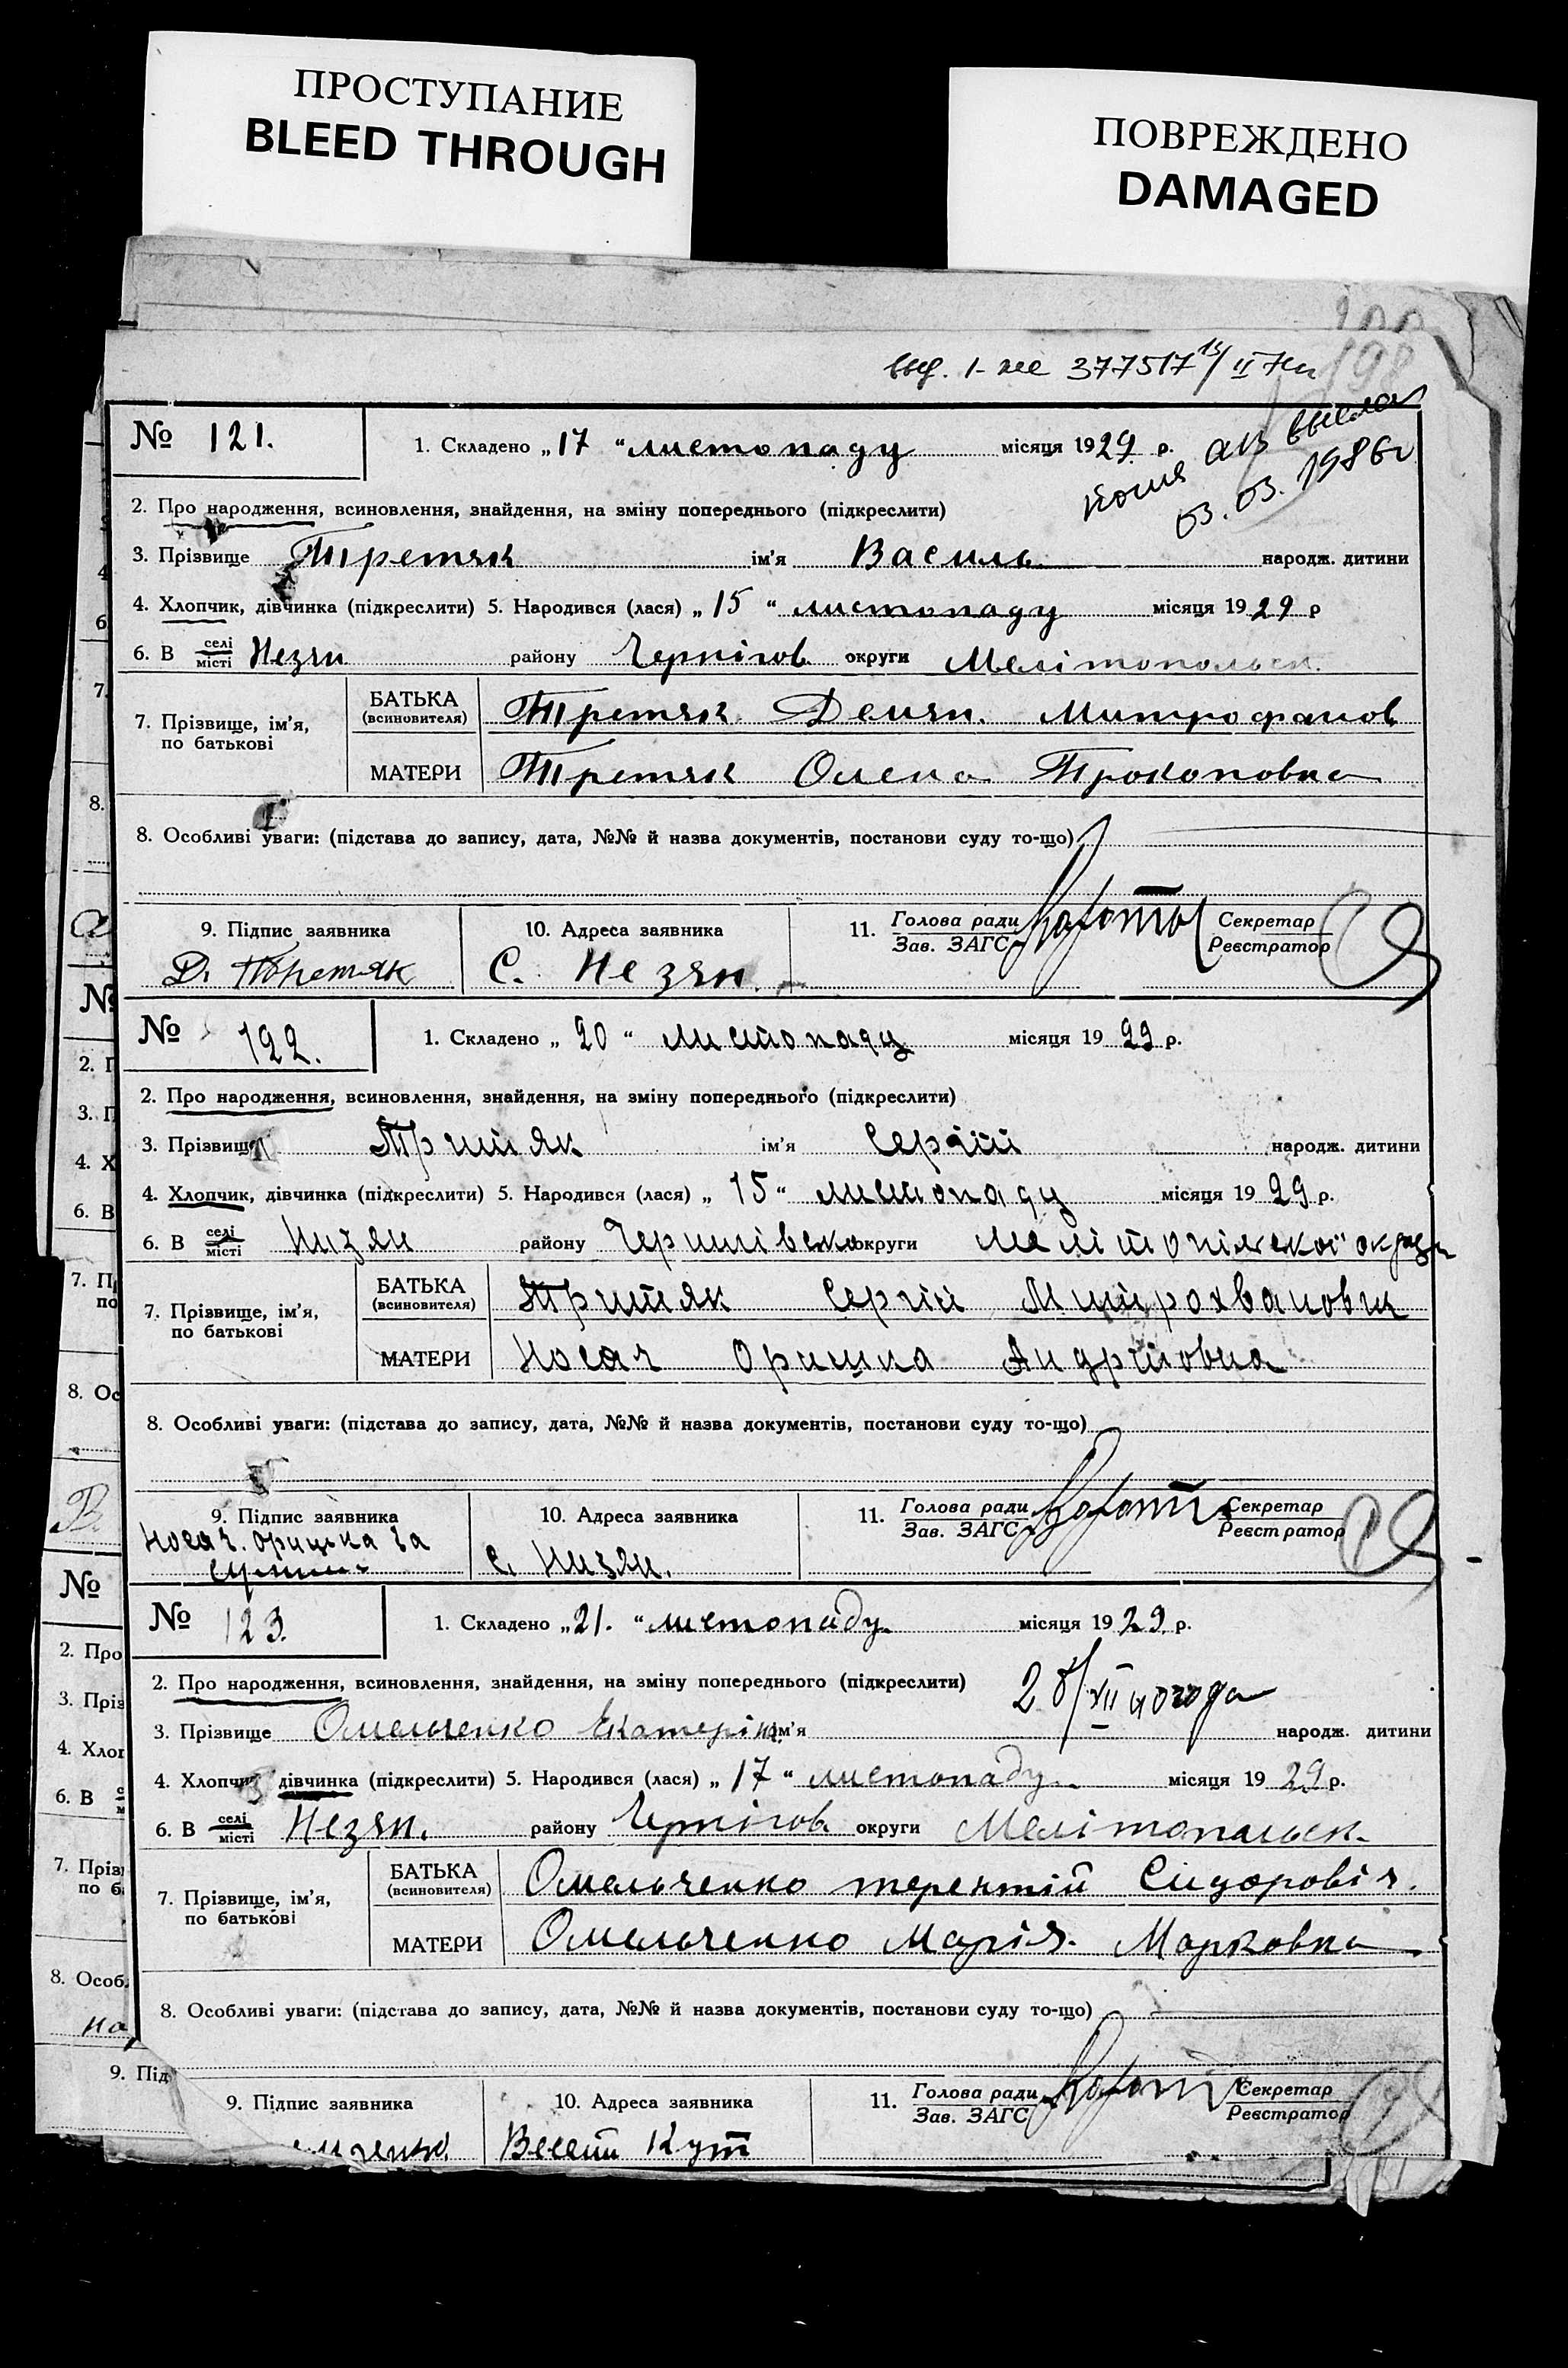 ПРОСТУПАНИЕ
BLEED THROUGH
ПОВРЕЖДЕНО
DAMAGED
198
№ 121.
1. Складено „17“ листопаду місяця 1929 р.
копія
03.03.1986г
2. Про народження, всиновлення, знайдення, на зміну попереднього (підкреслити)
3. Прізвище Третяк ім'я Василь народж. дитини
4. Хлопчик, дівчинка (підкреслити) 5. Народився (лася) „15“ листопаду місяця 1929 р
6. В селі/місті Незян району Чернігов. округи Мелітопольск.
7. Прізвище, ім'я, по батькові
БАТЬКА (всиновителя) Третяк Демян. Митрофанов
МАТЕРИ Третяк Олена Прокоповна
8. Особливі уваги: (підстава до запису, дата, №№ й назва документів, постанови суду то-що)
9. Підпис заявника 10. Адреса заявника 11. Голова ради/Зав. ЗАГС Секретар/Реєстратор
Д. Третяк С. Незян.
№ 122.
1. Складено „20“ листопаду місяця 1929 р.
2. Про народження, всиновлення, знайдення, на зміну попереднього (підкреслити)
3. Прізвище Тритяк ім'я Сергій народж. дитини
4. Хлопчик, дівчинка (підкреслити) 5. Народився (лася) „15“ листопаду місяця 1929 р.
6. В селі/місті Низян району округи Мелітопільскої округи
7. Прізвище, ім'я, по батькові
БАТЬКА (всиновителя) Тритяк Сергій Митрохванович
МАТЕРИ Носач Оришка Андрійовна
8. Особливі уваги: (підстава до запису, дата, №№ й назва документів, постанови суду то-що)
9. Підпис заявника 10. Адреса заявника 11. Голова ради/Зав. ЗАГС Секретар/Реєстратор
Носач. Оришка за
с. Низян.
№ 123.
1. Складено „21.“ листопаду місяця 1929. р.
2. Про народження, всиновлення, знайдення, на зміну попереднього (підкреслити)
3. Прізвище Омельченко Екатеріна ім'я народж. дитини
4. Хлопчик, дівчинка (підкреслити) 5. Народився (лася) „17“ листопаду місяця 1929 р.
6. В селі/місті Незян. району Чернігов. округи Мелітопольск.
7. Прізвище, ім'я, по батькові
БАТЬКА (всиновителя) Омельченко терентій Сидоровіч.
МАТЕРИ Омельченко Марія. Марковна
8. Особливі уваги: (підстава до запису, дата, №№ й назва документів, постанови суду то-що)
9. Підпис заявника 10. Адреса заявника 11. Голова ради/Зав. ЗАГС Секретар/Реєстратор
Кут